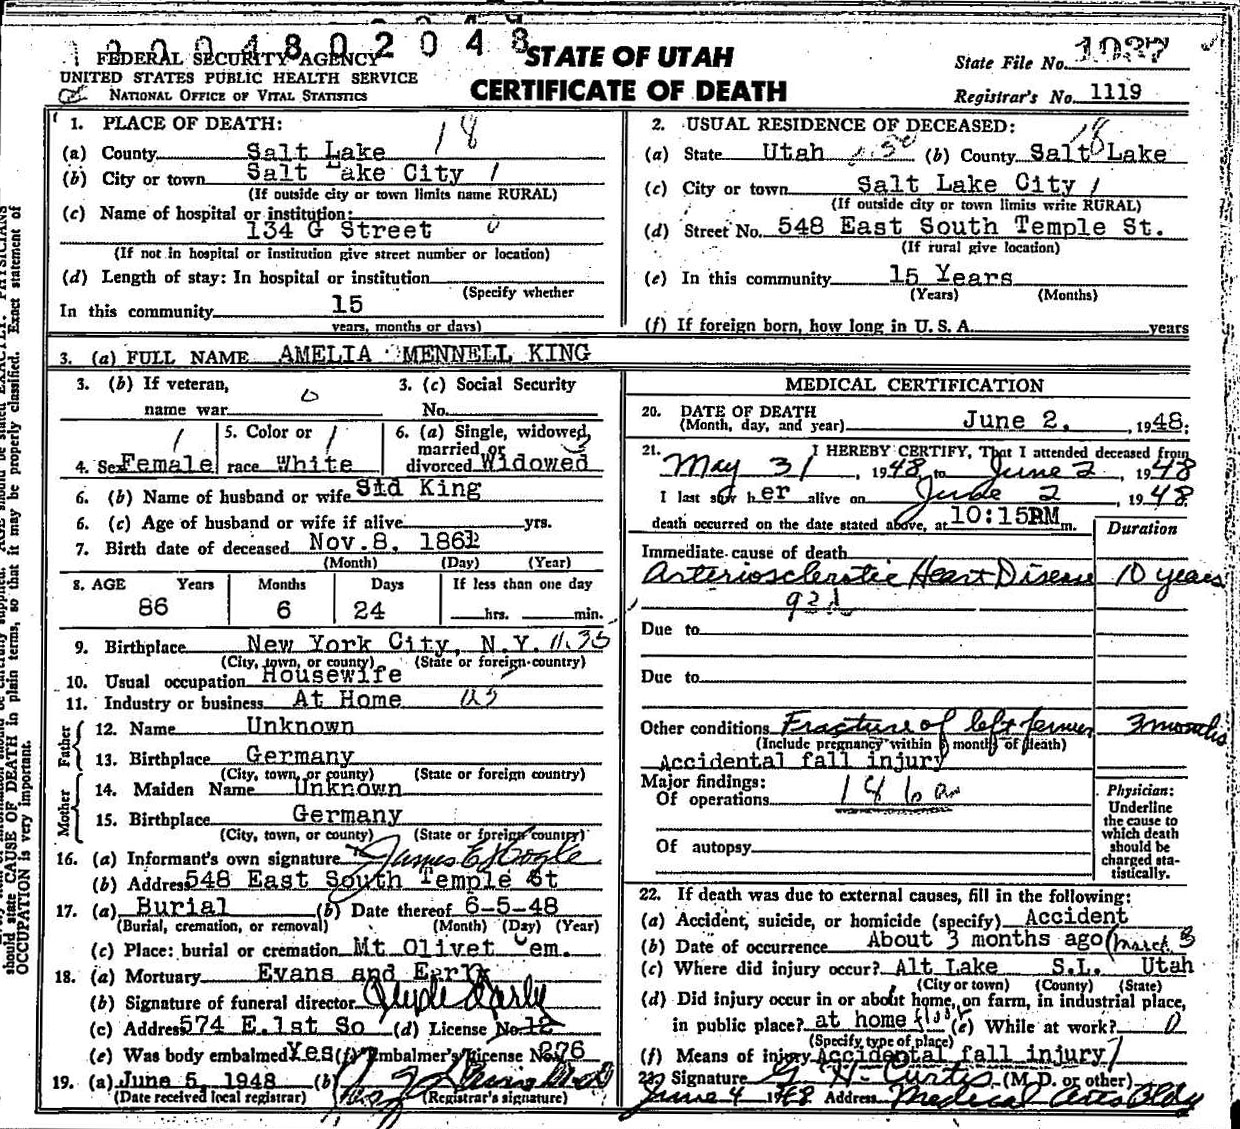 1 2 0 0 4 8 0 2 0 4 8
FEDERAL SECURITY AGENCY
UNITED STATES PUBLIC HEALTH SERVICE
NATIONAL OFFICE OF VITAL STATISTICS
STATE OF UTAH
CERTIFICATE OF DEATH
State File No. 1937
Registrar's No. 1119
1. PLACE OF DEATH: 18
(a) County Salt Lake
(b) City or town Salt Lake City 1
(If outside city or town limits name RURAL)
(c) Name of hospital or institution:
134 G Street 0
(If not in hospital or institution give street number or location)
(d) Length of stay: In hospital or institution
(Specify whether
In this community 15
years, months or days)
2. USUAL RESIDENCE OF DECEASED: 18
(a) State Utah (b) County Salt Lake
(c) City or town Salt Lake City 1
(If outside city or town limits write RURAL)
(d) Street No. 548 East South Temple St.
(If rural give location)
(e) In this community 15 Years
(Years) (Months)
(f) If foreign born, how long in U. S. A. years
3. (a) FULL NAME AMELIA MENNELL KING
3. (b) If veteran, name war 0
3. (c) Social Security No.
4. Sex Female 1
5. Color or race White 1
6. (a) Single, widowed, married or divorced Widowed
6. (b) Name of husband or wife Sid King
6. (c) Age of husband or wife if alive yrs.
7. Birth date of deceased Nov. 8, 1861
(Month) (Day) (Year)
8. AGE Years Months Days If less than one day
86 6 24 hrs. min.
9. Birthplace New York City, N.Y. 11.35
(City, town, or county) (State or foreign country)
10. Usual occupation Housewife
11. Industry or business At Home
Father
12. Name Unknown
13. Birthplace Germany
(City, town, or county) (State or foreign country)
Mother
14. Maiden Name Unknown
15. Birthplace Germany
(City, town, or county) (State or foreign country)
16. (a) Informant's own signature James E
(b) Address 548 East South Temple St
17. (a) Burial (b) Date thereof 6-5-48
(Burial, cremation, or removal) (Month) (Day) (Year)
(c) Place: burial or cremation Mt Olivet Cem.
18. (a) Mortuary Evans and Early
(b) Signature of funeral director Clyde Early
(c) Address 574 E.1st So (d) License No. 12
(e) Was body embalmed Yes (f) Embalmer's License No. 276
19. (a) June 5, 1948 (b)
(Date received local registrar) (Registrar's signature)
MEDICAL CERTIFICATION
20. DATE OF DEATH
(Month, day, and year) June 2, 1948.
21. I HEREBY CERTIFY, That I attended deceased from
May 31, 1948, to June 2, 1948
I last saw her alive on June 2 1948
death occurred on the date stated above, at 10:15PM m.
Duration
Immediate cause of death
Arteriosclerotic Heart Disease 10 years
93d
Due to
Due to
Other conditions Fracture of left femur 3 months
(Include pregnancy within 3 months of death)
Accidental fall injury
Major findings:
Of operations 186a
Of autopsy
Physician:
Underline
the cause to
which death
should be
charged sta-
tistically.
22. If death was due to external causes, fill in the following:
(a) Accident, suicide, or homicide (specify) Accident
(b) Date of occurrence About 3 months ago (March 3
(c) Where did injury occur? Alt Lake S.L. Utah
(City or town) (County) (State)
(d) Did injury occur in or about home, on farm, in industrial place,
in public place? at home floor (e) While at work? 0
(Specify type of place)
(f) Means of injury Accidental fall injury 1
23. Signature G H. Curtis (M.D. or other)
June 4 1948 Address Medical Arts Bldg
should state CAUSE OF DEATH in plain terms, so that it may be properly classified. Exact statement of
OCCUPATION is very important.